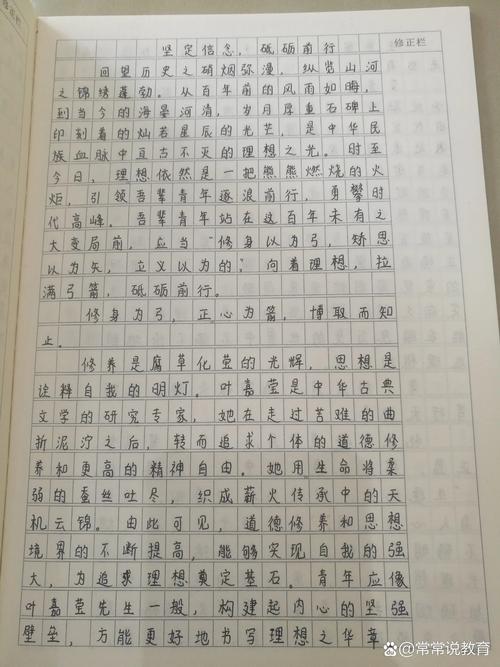 坚定信念，砥砺前行
修正栏
回望历史之硝烟弥漫，纵览山河
之锦绣蓬勃。从百年前的风雨如晦，
到当今的海晏河清，岁月厚重石碑上
印刻着的灿若星辰的光芒，是中华民
族血脉中亘古不灭的理想之光。时至
今日，理想依然是一把熊熊燃烧的火
炬，引领吾辈青年逐浪前行，勇攀时
代高峰。吾辈青年站在这百年未有之
大变局前，应当“修身以为弓，矫思
以为矢，立义以为的”，向着理想，拉
满弓箭，砥砺前行。
修身为弓，正心为箭，博取而知
止。
修养是腐草化萤的光辉，思想是
诠释自我的明灯。叶嘉莹是中华古典
文学的研究专家，她在走过苦难的曲
折泥泞之后，转而追求个体的道德修
养和更高的精神自由。她用生命将柔
弱的蚕丝吐尽，织成薪火传承中的天
机云锦。由此可见，道德修养和思想
境界的不断提高，能够实现自我的强
大，为追求理想奠定基石。青年应像
叶嘉莹先生一般，构建起内心的坚强
壁垒，方能更好地书写理想之华章
@常常说教育